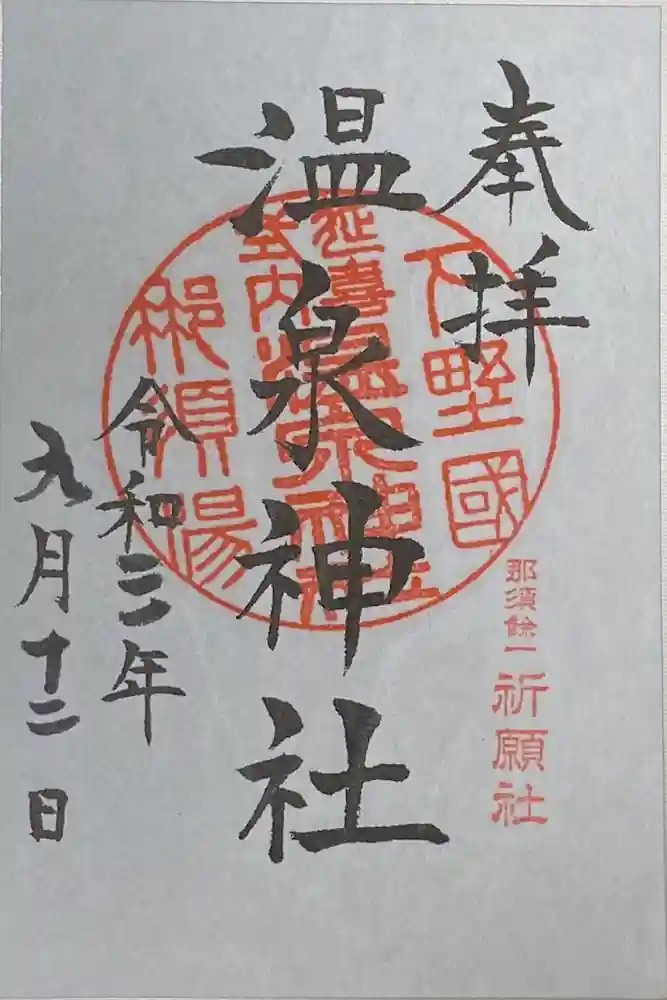 奉拝
下野國
那須餘一
祈願社
温泉神社
延喜
式内
温泉神社
那須湯
令和三年
九月十二日